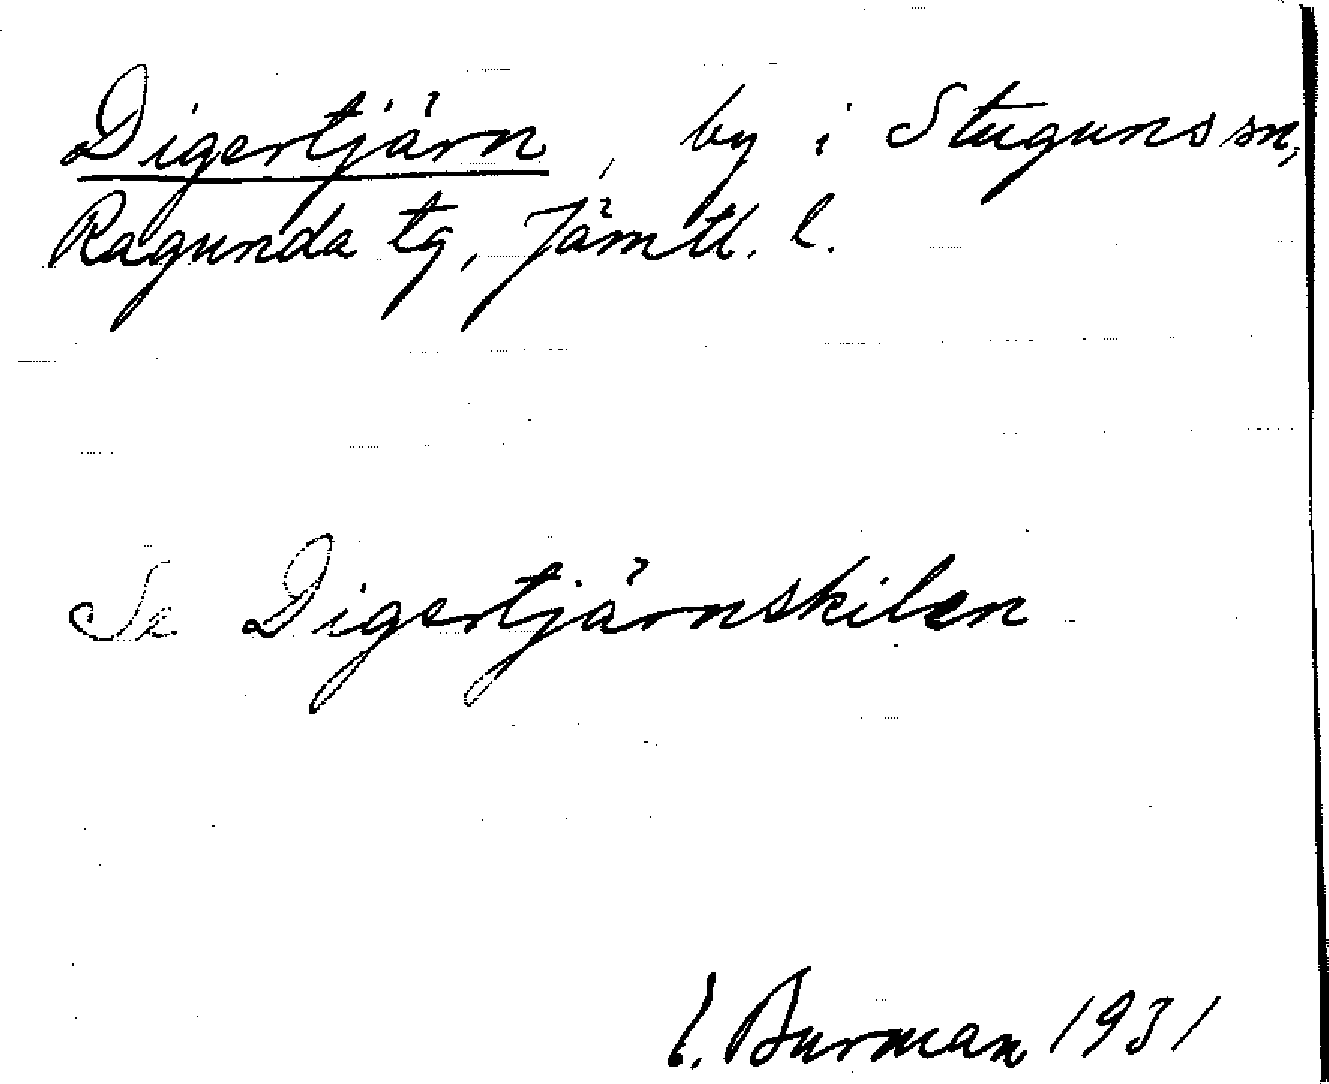 Digertjärn, by i Stuguns sn,
Ragunda tg, Jämtl. l.
Se Digertjärnskilen
E. Burman 1931